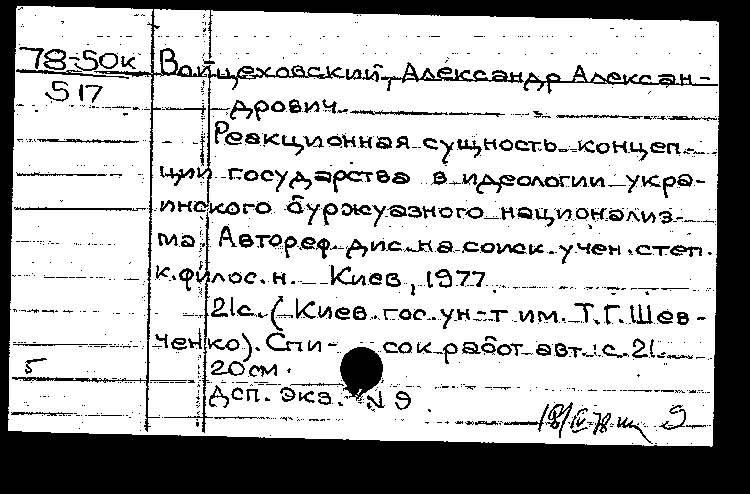 78-50к Войцеховский, Александр Алексан-
517 дрович.
Реакционная сущность концеп-
ции государства в идеологии укра-
инского буржуазного национализ-
ма. Автореф. дис. на соиск. учен. степ.
к. филос. н. Киев, 1977.
21с. (Киев. гос. ун-т им. Т.Г. Шев-
ченко). Спи- сок работ авт.: с. 21.
5 20 см.
Дсп. экз. N 9.
18/IV-78 9